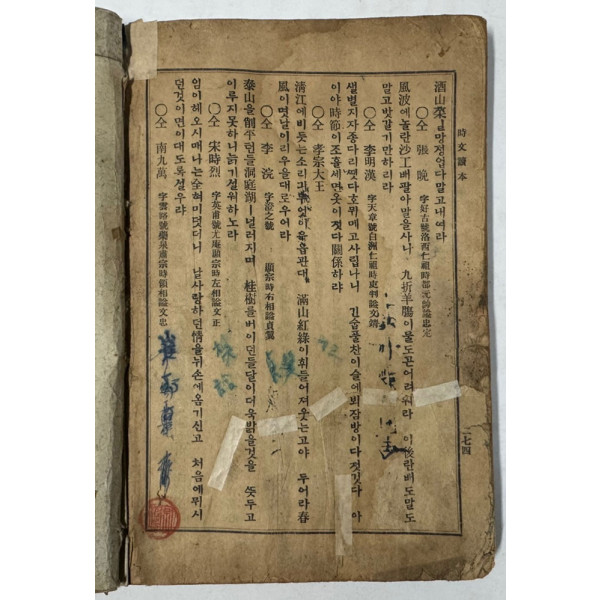 時文讀本
酒山菜ㄹ망졍업다말고내여라
○仝 張晩 字好古號洛西仁祖時都元帥謚忠定
風波에놀란沙工배팔아말을사니 九折羊腸이물도곤어려워라 이後란배도말도
말고밧갈기만하리라
○仝 李明漢 字天章號白洲仁祖時吏判謚文靖
샐별지자종다리떳다호뮈메고사립나니 긴숩풀찬이슬에뵈잠방이다젓것다 아
이야時節이조흘세면옷이젓다關係하랴
○仝 孝宗大王
淸江에비듯는소리긔무엇이우읍관대 滿山紅綠이휘들어져웃는고야 두어라春
風이몃날이리우을대로우어라
○仝 李浣 字澄之號 顯宗時右相謚貞翼
泰山을削平턴들洞庭湖ㅣ널러지며 桂樹를버이던들달이더욱밝을것을 뜻두고
이루지못하니늙기설워하노라
○仝 宋時烈 字英甫號尤庵顯宗時左相謚文正
임이헤오시매나는全혀미덧더니 날사랑하던情을뉘손에옴기신고 처음에뮈시
던것이면이대도록셜우랴
○仝 南九萬 字雲路號藥泉肅宗時領相謚文忠
二七四